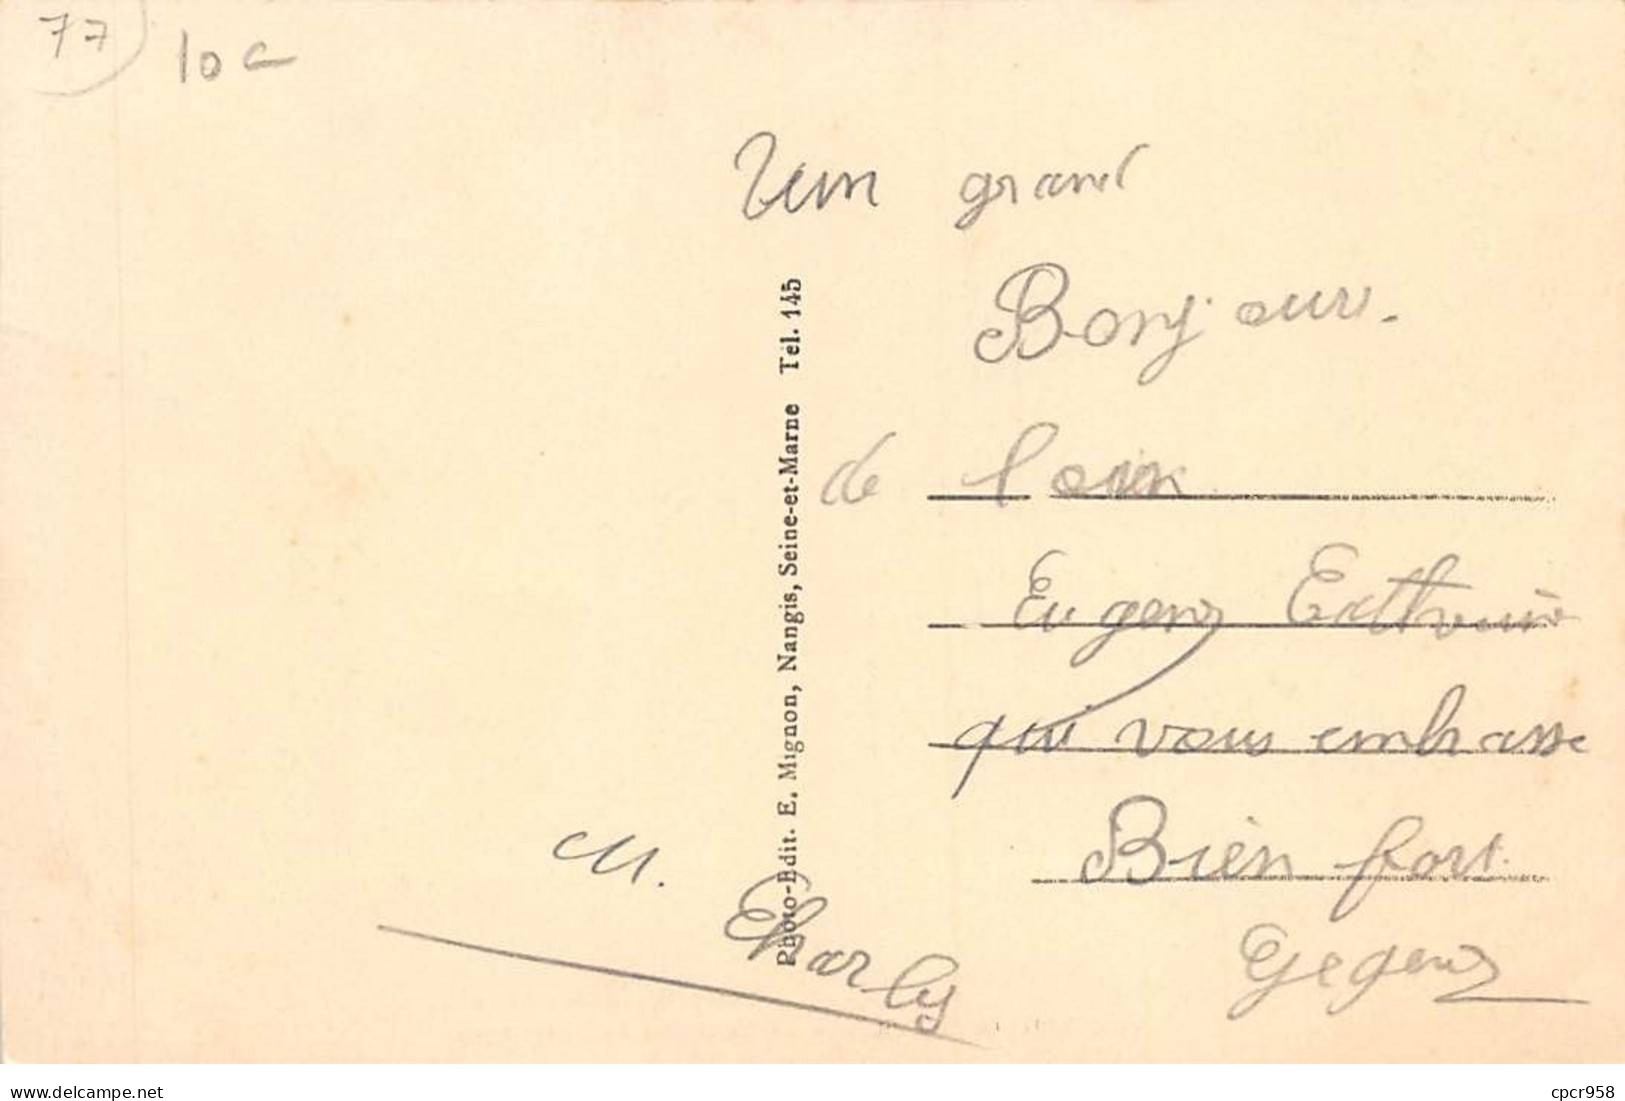 77
10 c
Un grand
Bonjour.
de loin
Eugene
qui vous embrasse
Bien fort.
M. Charly
Photo-Edit. E. Mignon, Nangis, Seine-et-Marne Tél. 145
www.delcampe.net
cpcr958